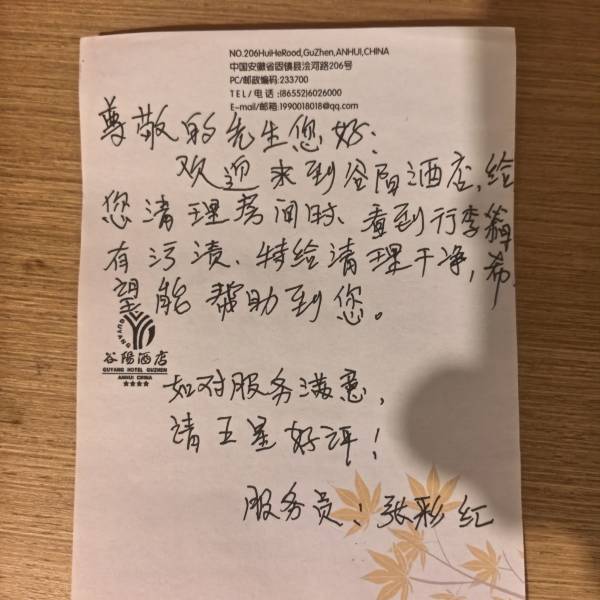 NO.206HuiHeRood,GuZhen,ANHUI,CHINA
中国安徽省固镇县浍河路206号
PC/邮政编码:233700
TEL/电话:(86552)6026000
E-mail/邮箱:1990018018@qq.com
尊敬的先生您好:
欢迎来到谷阳酒店,给
您清理房间时、看到行李箱
有污渍、特给清理干净,希
望能帮助到您。
GUYANG
谷陽酒店
GUYANG HOTEL GUZHEN
ANHUI CHINA
★★★★
如对服务满意,
请五星好评!
服务员:张彩红